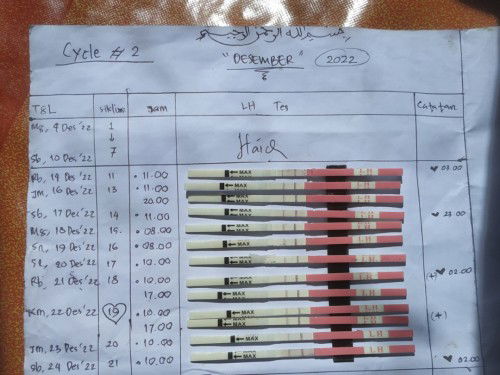 بسم الله الرحمن الرحيم
Cycle # 2
"DESEMBER" 2022
TGL siklus Jam LH Tes Catatan
Mg, 4 Des '22 1
Haid
Sb, 10 Des '22 7
Rb, 14 Des '22 11 • 11.00 MAX LH 03.00
Jm, 16 Des '22 13 • 11.00 MAX LH
20.00 MAX LH
Sb, 17 Des '22 14 • 11.00 MAX LH 23.00
Mg, 18 Des '22 15. • 08.00 MAX LH
Sn, 19 Des '22 16 • 08.00 MAX LH
Sl, 20 Des '22 17 • 10.00 MAX LH
Rb, 21 Des '22 18 • 10.00 MAX LH (+) 02.00
17.00 MAX LH
Km, 22 Des '22 19 • 10.00 MAX LH (+)
17.00 MAX LH
Jm, 23 Des '22 20 • 10.00 MAX LH
Sb, 24 Des '22 21 • 10.00 MAX LH 02.00